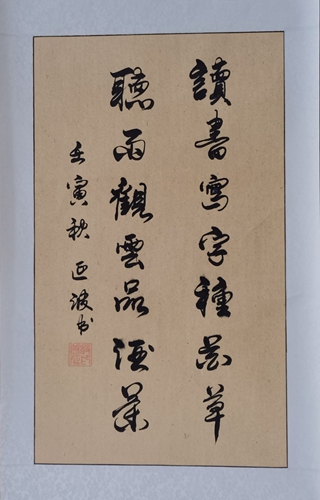 讀書寫字種花草
聽雨觀雲品酒茶
壬寅秋 正波书